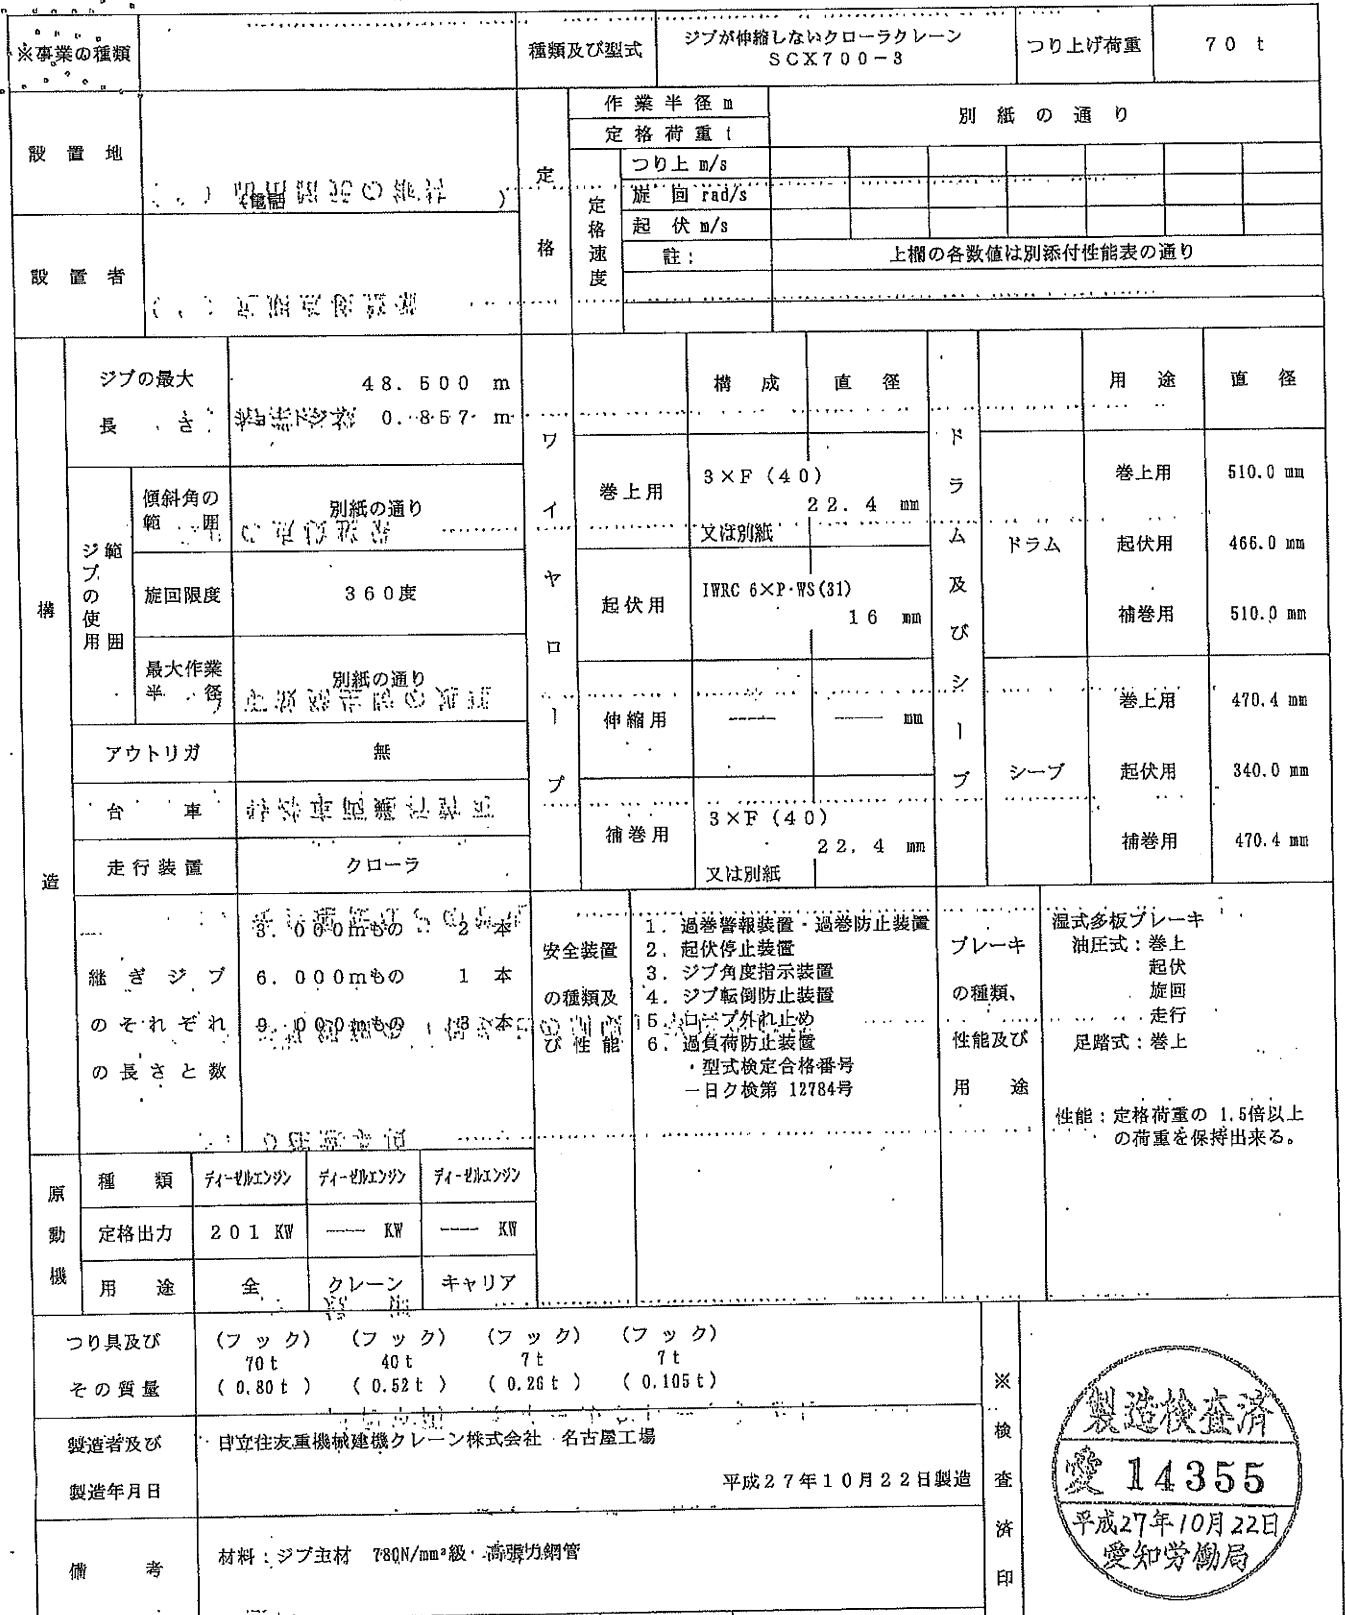 ※事業の種類
種類及び型式
ジブが伸縮しないクローラクレーン
SCX700-3
つり上げ荷重
70 t
設置地
設置者
定格
作業半径m
定格荷重t
別紙の通り
定格速度
つり上 m/s
旋回 rad/s
起伏 m/s
註:
上欄の各数値は別添付性能表の通り
構造
ジブの最大
長さ
48.500 m
0.857 m
ジブの使用範囲
傾斜角の
範囲
別紙の通り
旋回限度
360度
最大作業
半径
別紙の通り
アウトリガ
無
台車
走行装置
クローラ
継ぎジブ
のそれぞれ
の長さと数
3.000mもの 2本
6.000mもの 1本
9.000mもの 3本
ワイヤロープ
構成
直径
巻上用
3×F(40)
22.4 mm
又は別紙
起伏用
IWRC 6×P·WS(31)
16 mm
伸縮用
---- ---- mm
補巻用
3×F(40)
22.4 mm
又は別紙
ドラム及びシーブ
用途
直径
ドラム
巻上用 510.0 mm
起伏用 466.0 mm
補巻用 510.0 mm
シーブ
巻上用 470.4 mm
起伏用 340.0 mm
補巻用 470.4 mm
安全装置
の種類及
び性能
1. 過巻警報装置・過巻防止装置
2. 起伏停止装置
3. ジブ角度指示装置
4. ジブ転倒防止装置
5. ロープ外れ止め
6. 過負荷防止装置
・型式検定合格番号
一日ク検第 12784号
ブレーキ
の種類、
性能及び
用途
湿式多板ブレーキ
油圧式:巻上
起伏
旋回
走行
足踏式:巻上
性能:定格荷重の 1.5倍以上
の荷重を保持出来る。
原動機
種類
ディーゼルエンジン
ディーゼルエンジン
ディーゼルエンジン
定格出力
201 KW
---- KW
---- KW
用途
全
クレーン
キャリア
つり具及び
その質量
(フック) (フック) (フック) (フック)
70t 40t 7t 7t
(0.80t) (0.52t) (0.26t) (0.105t)
製造者及び
製造年月日
日立住友重機械建機クレーン株式会社 名古屋工場
平成27年10月22日製造
備考
材料:ジブ主材 780N/mm²級・高張力鋼管
※検査済印
製造検査済
愛14355
平成27年10月22日
愛知労働局